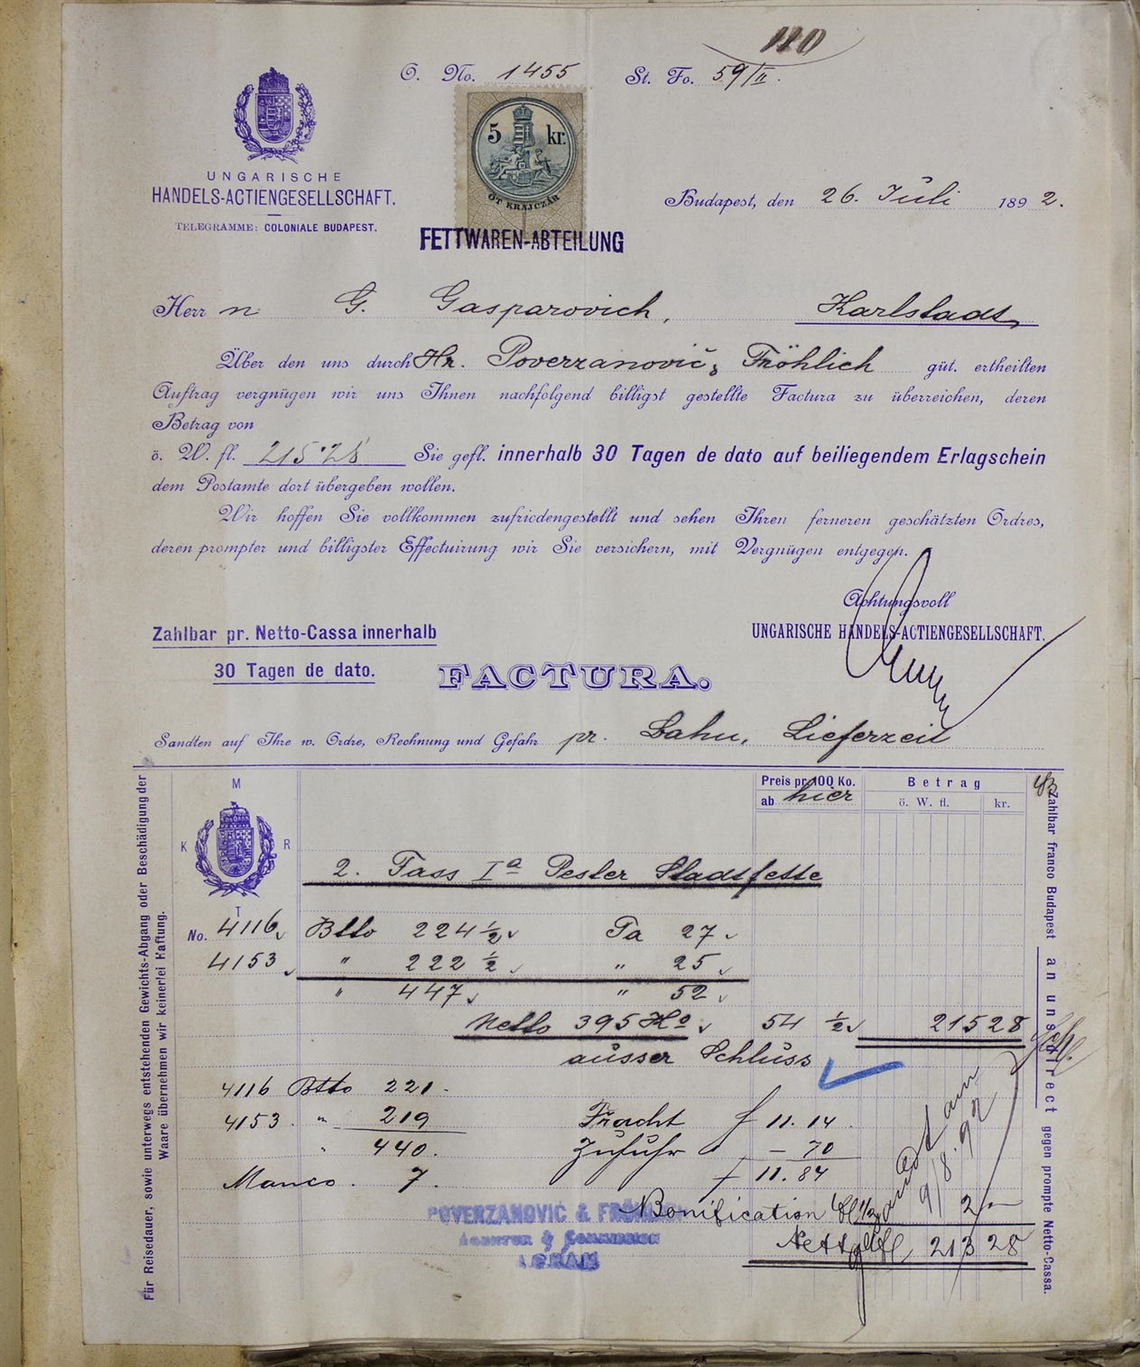 110
O. No. 1455
St. Fo. 59/II.
5 kr.
ÖT KRAJCZÁR
UNGARISCHE
HANDELS-ACTIENGESELLSCHAFT.
TELEGRAMME: COLONIALE BUDAPEST.
Budapest, den 26. Juli 1892.
FETTWAREN-ABTEILUNG
Herrn G. Gasparovich, Karlstadt
Über den uns durch Hr. Poverzanovič & Fröhlich güt. ertheilten
Auftrag vergnügen wir uns Ihnen nachfolgend billigst gestellte Factura zu überreichen, deren
Betrag von
ö. W. fl. 215·28 Sie gefl. innerhalb 30 Tagen de dato auf beiliegendem Erlagschein
dem Postamte dort übergeben wollen.
Wir hoffen Sie vollkommen zufriedengestellt und sehen Ihren ferneren geschätzten Ordres,
deren prompter und billigster Effectuirung wir Sie versichern, mit Vergnügen entgegen.
Achtungsvoll
UNGARISCHE HANDELS-ACTIENGESELLSCHAFT.
Zahlbar pr. Netto-Cassa innerhalb
30 Tagen de dato.
FACTURA.
Sandten auf Ihre w. Ordre, Rechnung und Gefahr pr. Bahn, Lieferzeit
Für Reisedauer, sowie unterwegs entstehenden Gewichts-Abgang oder Beschädigung der
Waare übernehmen wir keinerlei Haftung.
M
K R
T
Preis pr. 100 Ko.
ab hier
Betrag
ö. W. fl. kr.
2. Fass Iª Pester Stadtfette
No. 4116 Btto 224 ½ Ta 27
4153 " 222 ½ " 25
" 447 " 52
Netto 395 Ko 54 ½ 215 28
ausser Schluss
4116 Btto 221.
4153. " 219 Fracht f 11.14
" 440. Zufuhr " – 70
Manco. 7. f 11.84
Bonification 2 –
Netto 213 28
9/8.92
POVERZANOVIC & FRÖHLICH
AGENTUR & COMMISSION
AGRAM
Zahlbar franco Budapest an uns direct gegen prompte Netto-Cassa.